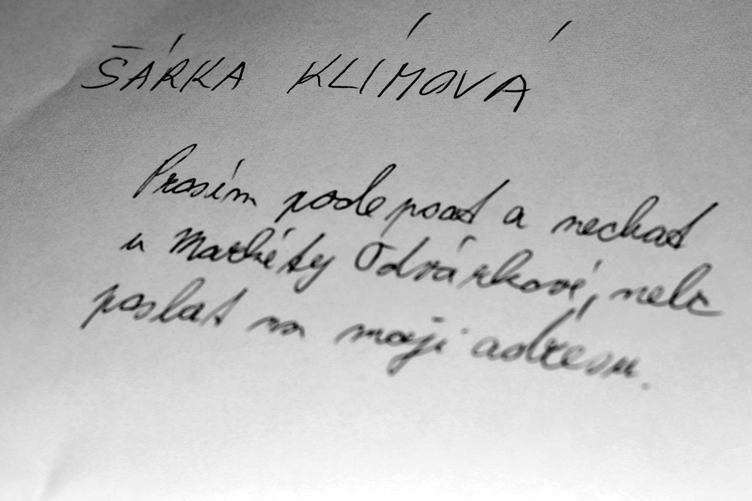 ŠÁRKA KLÍMOVÁ
Prosím podepsat a nechat
u Markéty Odvárkové, nebo
poslat na moji adresu.